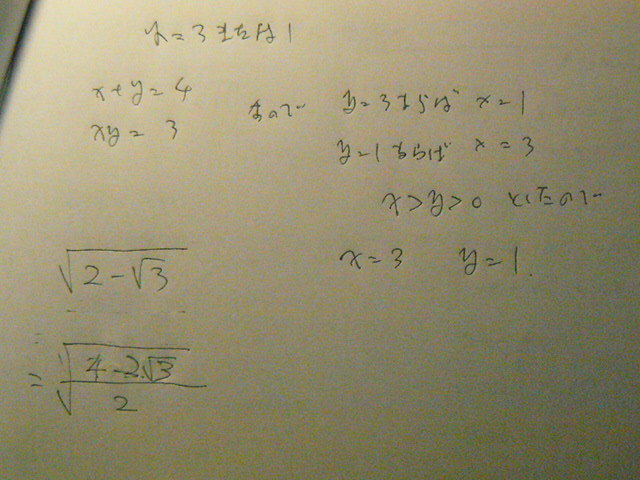 y=3または1
x+y=4
xy=3
なので y=3ならば x=1
y=1ならば x=3
x>y>0 としたので
x=3 y=1.
√(2-√3)
=√((4-2√3)/2)